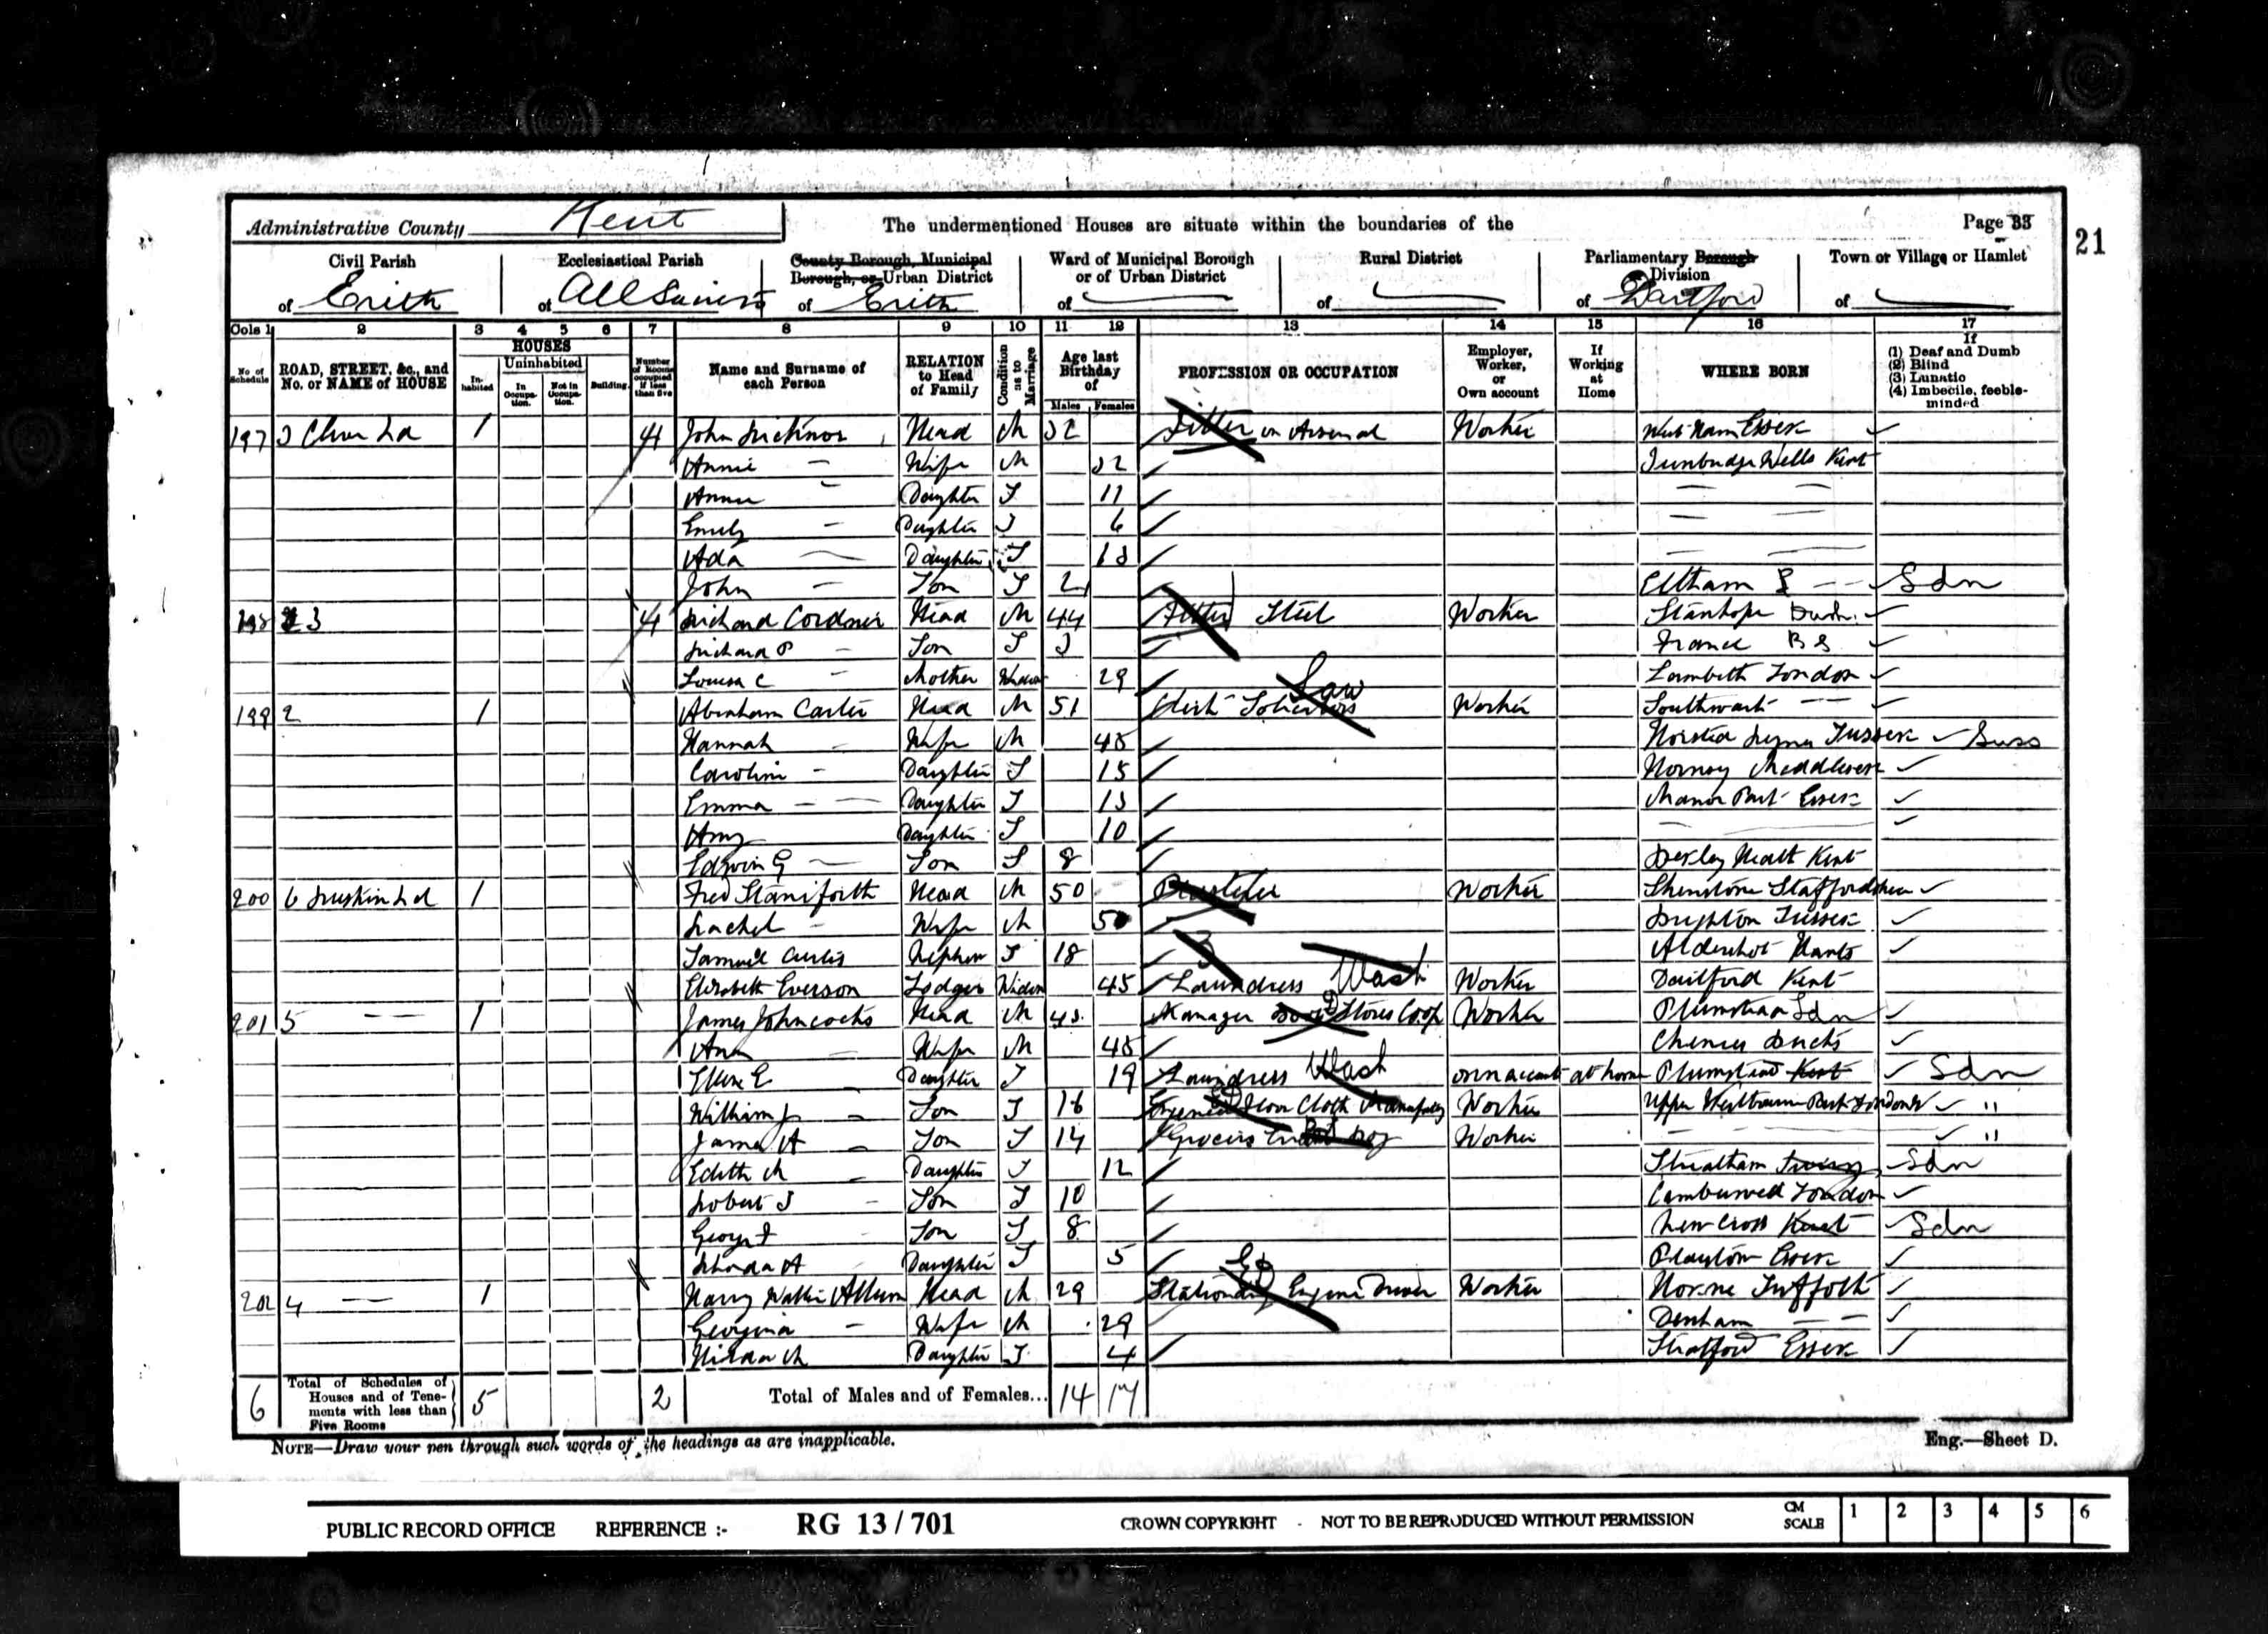 Administrative County Kent
The undermentioned Houses are situate within the boundaries of the
Page 33
21
Civil Parish of Erith
Ecclesiastical Parish of All Saints
County Borough, Municipal Borough, or Urban District of Erith
Ward of Municipal Borough or of Urban District of
Rural District of
Parliamentary Borough Division of Dartford
Town or Village or Hamlet of
Cols 1 2 3 4 5 6 7 8 9 10 11 12 13 14 15 16 17
No. of Schedule
ROAD, STREET, &c., and No. or NAME of HOUSE
HOUSES
Inhabited
Uninhabited
In Occupation.
Not in Occupation.
Building
Number of Rooms occupied if less than five
Name and Surname of each Person
RELATION to Head of Family
Condition as to Marriage
Age last Birthday of
Males Females
PROFESSION OR OCCUPATION
Employer, Worker, or Own account
If Working at Home
WHERE BORN
If
(1) Deaf and Dumb
(2) Blind
(3) Lunatic
(4) Imbecile, feeble-minded
197 1 4 John Head M 32 Fitter in Arsenal Worker West Ham Essex
Annie — Wife M 32 Tunbridge Wells Kent
Annie — Daughter S 11 — —
Emily — Daughter S 6 — —
Ada — Daughter S — —
John — Son S 2 Eltham — Ldn
198 3 4 Richard Cordner Head M 44 Fitter Steel Worker Stanhope Durh.
Richard P — Son S 3 France B S
Louisa C — Mother Widow 29 Lambeth London
199 2 1 Abraham Carter Head M 51 Clerk Solicitors Law Worker Southwark — —
Hannah — Wife M 45 Horsted Keynes Sussex Suss
Caroline — Daughter S 15 Hornsey Middlesex
Emma — Daughter S 13 Manor Park Essex
Amy Daughter S 10 —
Edwin G — Son S 8 Bexley Heath Kent
200 6 Ruskin Rd 1 Fred Staniforth Head M 50 Worker Shenstone Staffordshire
Rachel — Wife M 50 Brighton Sussex
Samuel Curtis Nephew S 18 Aldershot Hants
Elizabeth Everson Lodger Widow 45 Laundress Wash Worker Dartford Kent
201 5 — 1 James Johncocks Head M 43 Manager Stores Coop Worker Plumstead Ldn
Ann — Wife M 45 Chenies Bucks
Ellen E Daughter S 19 Laundress Wash own account at home Plumstead Kent Ldn
William J — Son S 16 Floor Cloth Manufactory Worker Upper Westbourne Park London "
James A — Son S 14 Grocers Errand Boy Worker — "
Edith M — Daughter S 12 Streatham Surrey Ldn
Robert J — Son S 10 Camberwell London
George F Son S 8 New Cross Kent Ldn
Rhoda A Daughter S 5 Essex
202 4 — 1 Harry Walter Allum Head M 29 Stationary Engine Driver Worker Horne Suffolk
Georgina — Wife M 29 Denham — —
Hilda M Daughter S 4 Stratford Essex
6 Total of Schedules of Houses and of Tenements with less than Five Rooms 5 2 Total of Males and of Females... 14 17
NOTE—Draw your pen through such words of the headings as are inapplicable.
Eng.—Sheet D.
PUBLIC RECORD OFFICE REFERENCE :- RG 13 / 701 CROWN COPYRIGHT - NOT TO BE REPRODUCED WITHOUT PERMISSION CM SCALE 1 2 3 4 5 6